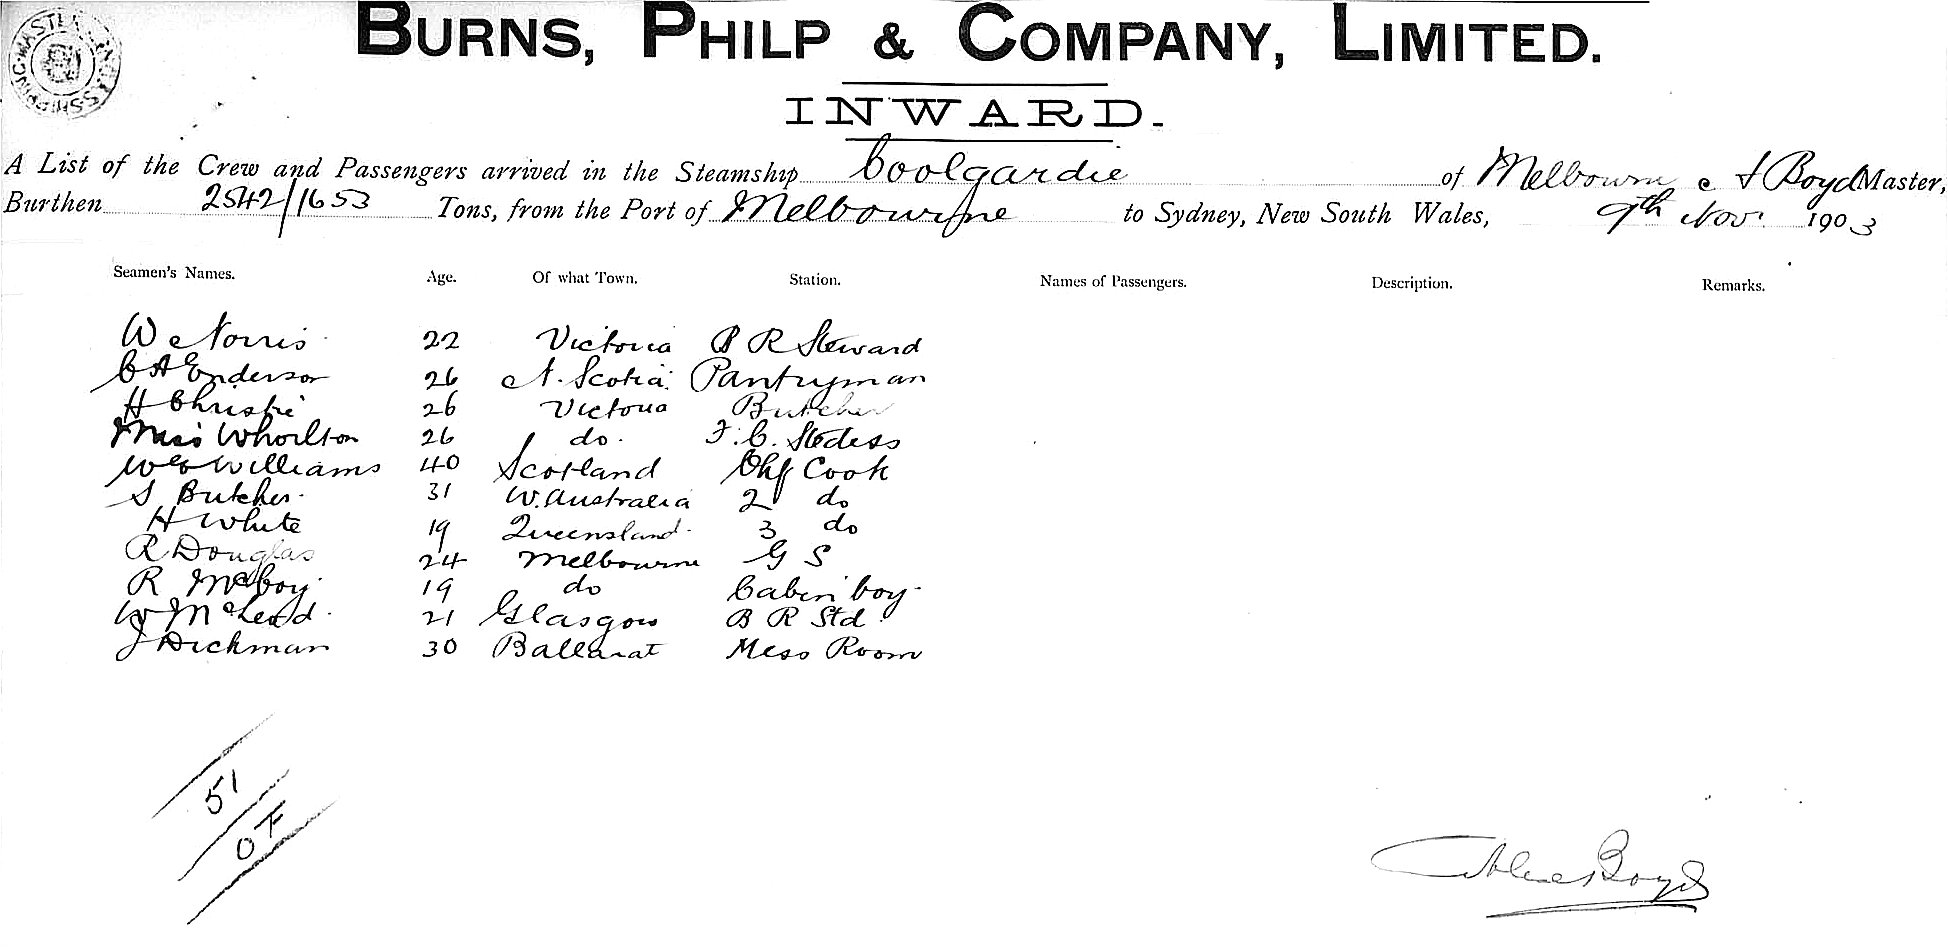 BURNS, PHILP & COMPANY, LIMITED.
INWARD.
A List of the Crew and Passengers arrived in the Steamship Coolgardie of Melbourne A Boyd Master,
Burthen 2542/1653 Tons, from the Port of Melbourne to Sydney, New South Wales, 9th Nov. 1903
Seamen's Names. Age. Of what Town. Station. Names of Passengers. Description. Remarks.
W Norris 22 Victoria B R Steward
C A Enderson 26 N. Scotia Pantryman
H Christie 26 Victoria Butcher
Miss Whorlton 26 do. F.C. Stdess
Williams 40 Scotland Chf Cook
S Butcher 31 W. Australia 2 do
H White 19 Queensland 3 do
R Douglas 24 Melbourne G S
R McCoy 19 do Cabin boy
W McLeod 21 Glasgow B R Std
J Dickman 30 Ballarat Mess Room
51
Boyd